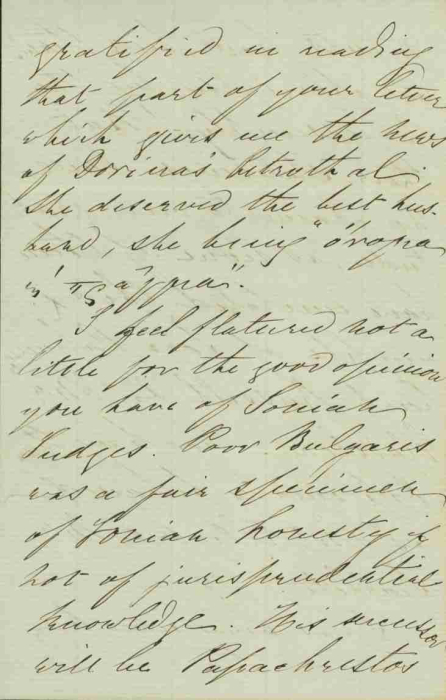 gratified in reading
that part of your letter
which gives me the news
of Dorina's betrothal.
She deserved the best hus-
band, she being "ὄνομα
καὶ πρᾶγμα".
I feel flattered not a
little for the good opinion
you have of Ionian
Judges. Poor Bulgaris
was a fair specimen
of Ionian honesty if
not of jurisprudential
knowledge. His successor
will be Papachrestos